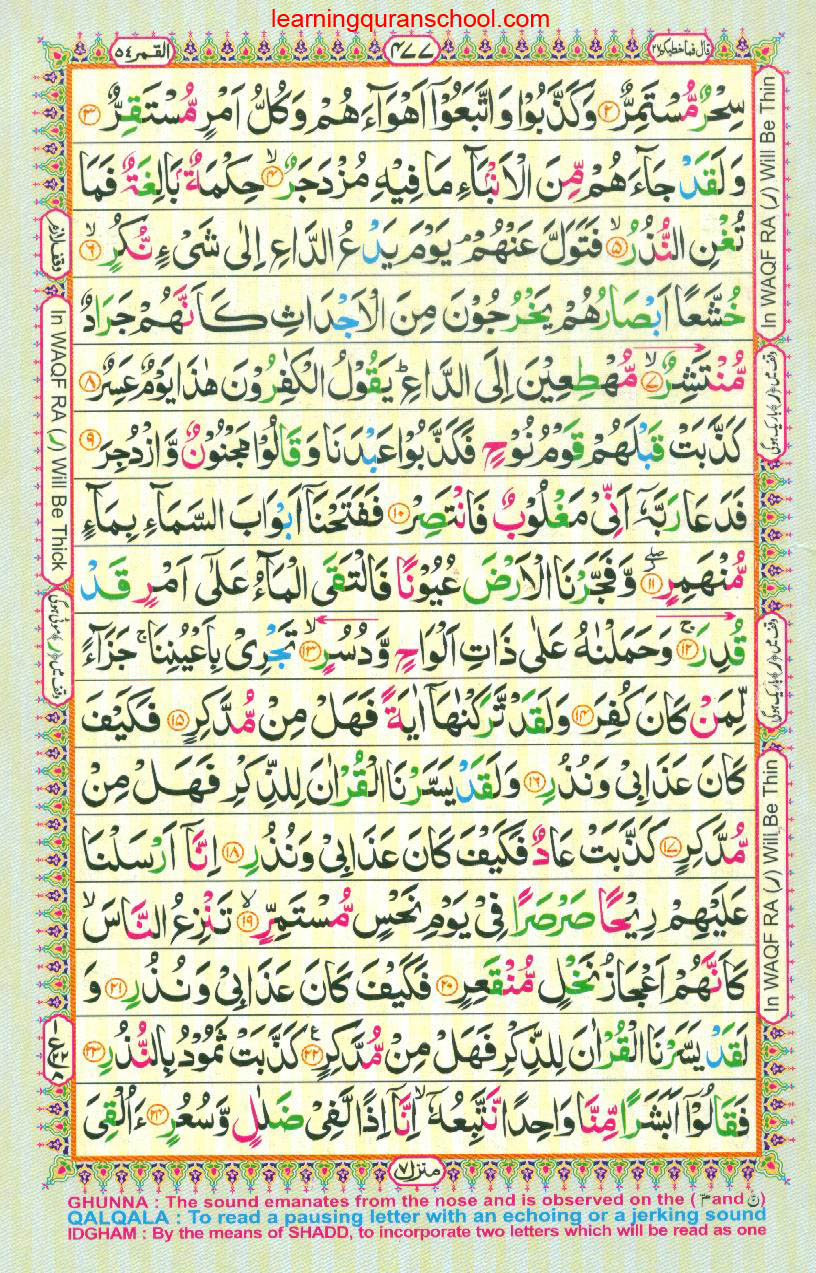 learningquranschool.com
القمر ٥٤
٤٧٧
قال فما خطبكم ٢٧
سِحْرٌ مُّسْتَمِرٌّ ۝۲ وَكَذَّبُوْا وَاتَّبَعُوْۤا اَهْوَآءَهُمْ وَكُلُّ اَمْرٍ مُّسْتَقِرٌّ ۝۳
وَلَقَدْ جَآءَهُمْ مِّنَ الْاَنْۢبَآءِ مَا فِيْهِ مُزْدَجَرٌ ۙ۝۴ حِكْمَةٌۢ بَالِغَةٌ فَمَا
تُغْنِ النُّذُرُ ۙ۝۵ فَتَوَلَّ عَنْهُمْ ۘ يَوْمَ يَدْعُ الدَّاعِ اِلٰى شَیْءٍ نُّكُرٍ ۙ۝۶
خُشَّعًا اَبْصَارُهُمْ يَخْرُجُوْنَ مِنَ الْاَجْدَاثِ كَاَنَّهُمْ جَرَادٌ
مُّنْتَشِرٌ ۙ۝۷ مُّهْطِعِيْنَ اِلَى الدَّاعِ ؕ يَقُوْلُ الْكٰفِرُوْنَ هٰذَا يَوْمٌ عَسِرٌ ۝۸
كَذَّبَتْ قَبْلَهُمْ قَوْمُ نُوْحٍ فَكَذَّبُوْا عَبْدَنَا وَقَالُوْا مَجْنُوْنٌ وَّازْدُجِرَ ۝۹
فَدَعَا رَبَّهٗۤ اَنِّیْ مَغْلُوْبٌ فَانْتَصِرْ ۝۱۰ فَفَتَحْنَاۤ اَبْوَابَ السَّمَآءِ بِمَآءٍ
مُّنْهَمِرٍ ۝۱۱ وَّفَجَّرْنَا الْاَرْضَ عُيُوْنًا فَالْتَقَى الْمَآءُ عَلٰۤى اَمْرٍ قَدْ
قُدِرَ ۚ۝۱۲ وَحَمَلْنٰهُ عَلٰى ذَاتِ اَلْوَاحٍ وَّدُسُرٍ ۙ۝۱۳ تَجْرِیْ بِاَعْيُنِنَا ۚ جَزَآءً
لِّمَنْ كَانَ كُفِرَ ۝۱۴ وَلَقَدْ تَّرَكْنٰهَاۤ اٰيَةً فَهَلْ مِنْ مُّدَّكِرٍ ۝۱۵ فَكَيْفَ
كَانَ عَذَابِیْ وَنُذُرِ ۝۱۶ وَلَقَدْ يَسَّرْنَا الْقُرْاٰنَ لِلذِّكْرِ فَهَلْ مِنْ
مُّدَّكِرٍ ۝۱۷ كَذَّبَتْ عَادٌ فَكَيْفَ كَانَ عَذَابِیْ وَنُذُرِ ۝۱۸ اِنَّاۤ اَرْسَلْنَا
عَلَيْهِمْ رِيْحًا صَرْصَرًا فِیْ يَوْمِ نَحْسٍ مُّسْتَمِرٍّ ۙ۝۱۹ تَنْزِعُ النَّاسَ ۙ
كَاَنَّهُمْ اَعْجَازُ نَخْلٍ مُّنْقَعِرٍ ۝۲۰ فَكَيْفَ كَانَ عَذَابِیْ وَنُذُرِ ۝۲۱ وَ
لَقَدْ يَسَّرْنَا الْقُرْاٰنَ لِلذِّكْرِ فَهَلْ مِنْ مُّدَّكِرٍ ۝۲۲ كَذَّبَتْ ثَمُوْدُ بِالنُّذُرِ ۝۲۳
فَقَالُوْۤا اَبَشَرًا مِّنَّا وَاحِدًا نَّتَّبِعُهٗۤ ۙ اِنَّاۤ اِذًا لَّفِیْ ضَلٰلٍ وَّسُعُرٍ ۝۲۴ ءَاُلْقِیَ
In WAQF RA (ر) Will Be Thin
وقف میں (ر) باریک ہوگی
وقف میں (ر) باریک ہوگی
In WAQF RA (ر) Will Be Thin
وقف لازم
In WAQF RA (ر) Will Be Thick
وقف میں (ر) موٹی ہوگی
منزل ٧
GHUNNA : The sound emanates from the nose and is observed on the ( مّ and نّ )
QALQALA : To read a pausing letter with an echoing or a jerking sound
IDGHAM : By the means of SHADD, to incorporate two letters which will be read as one